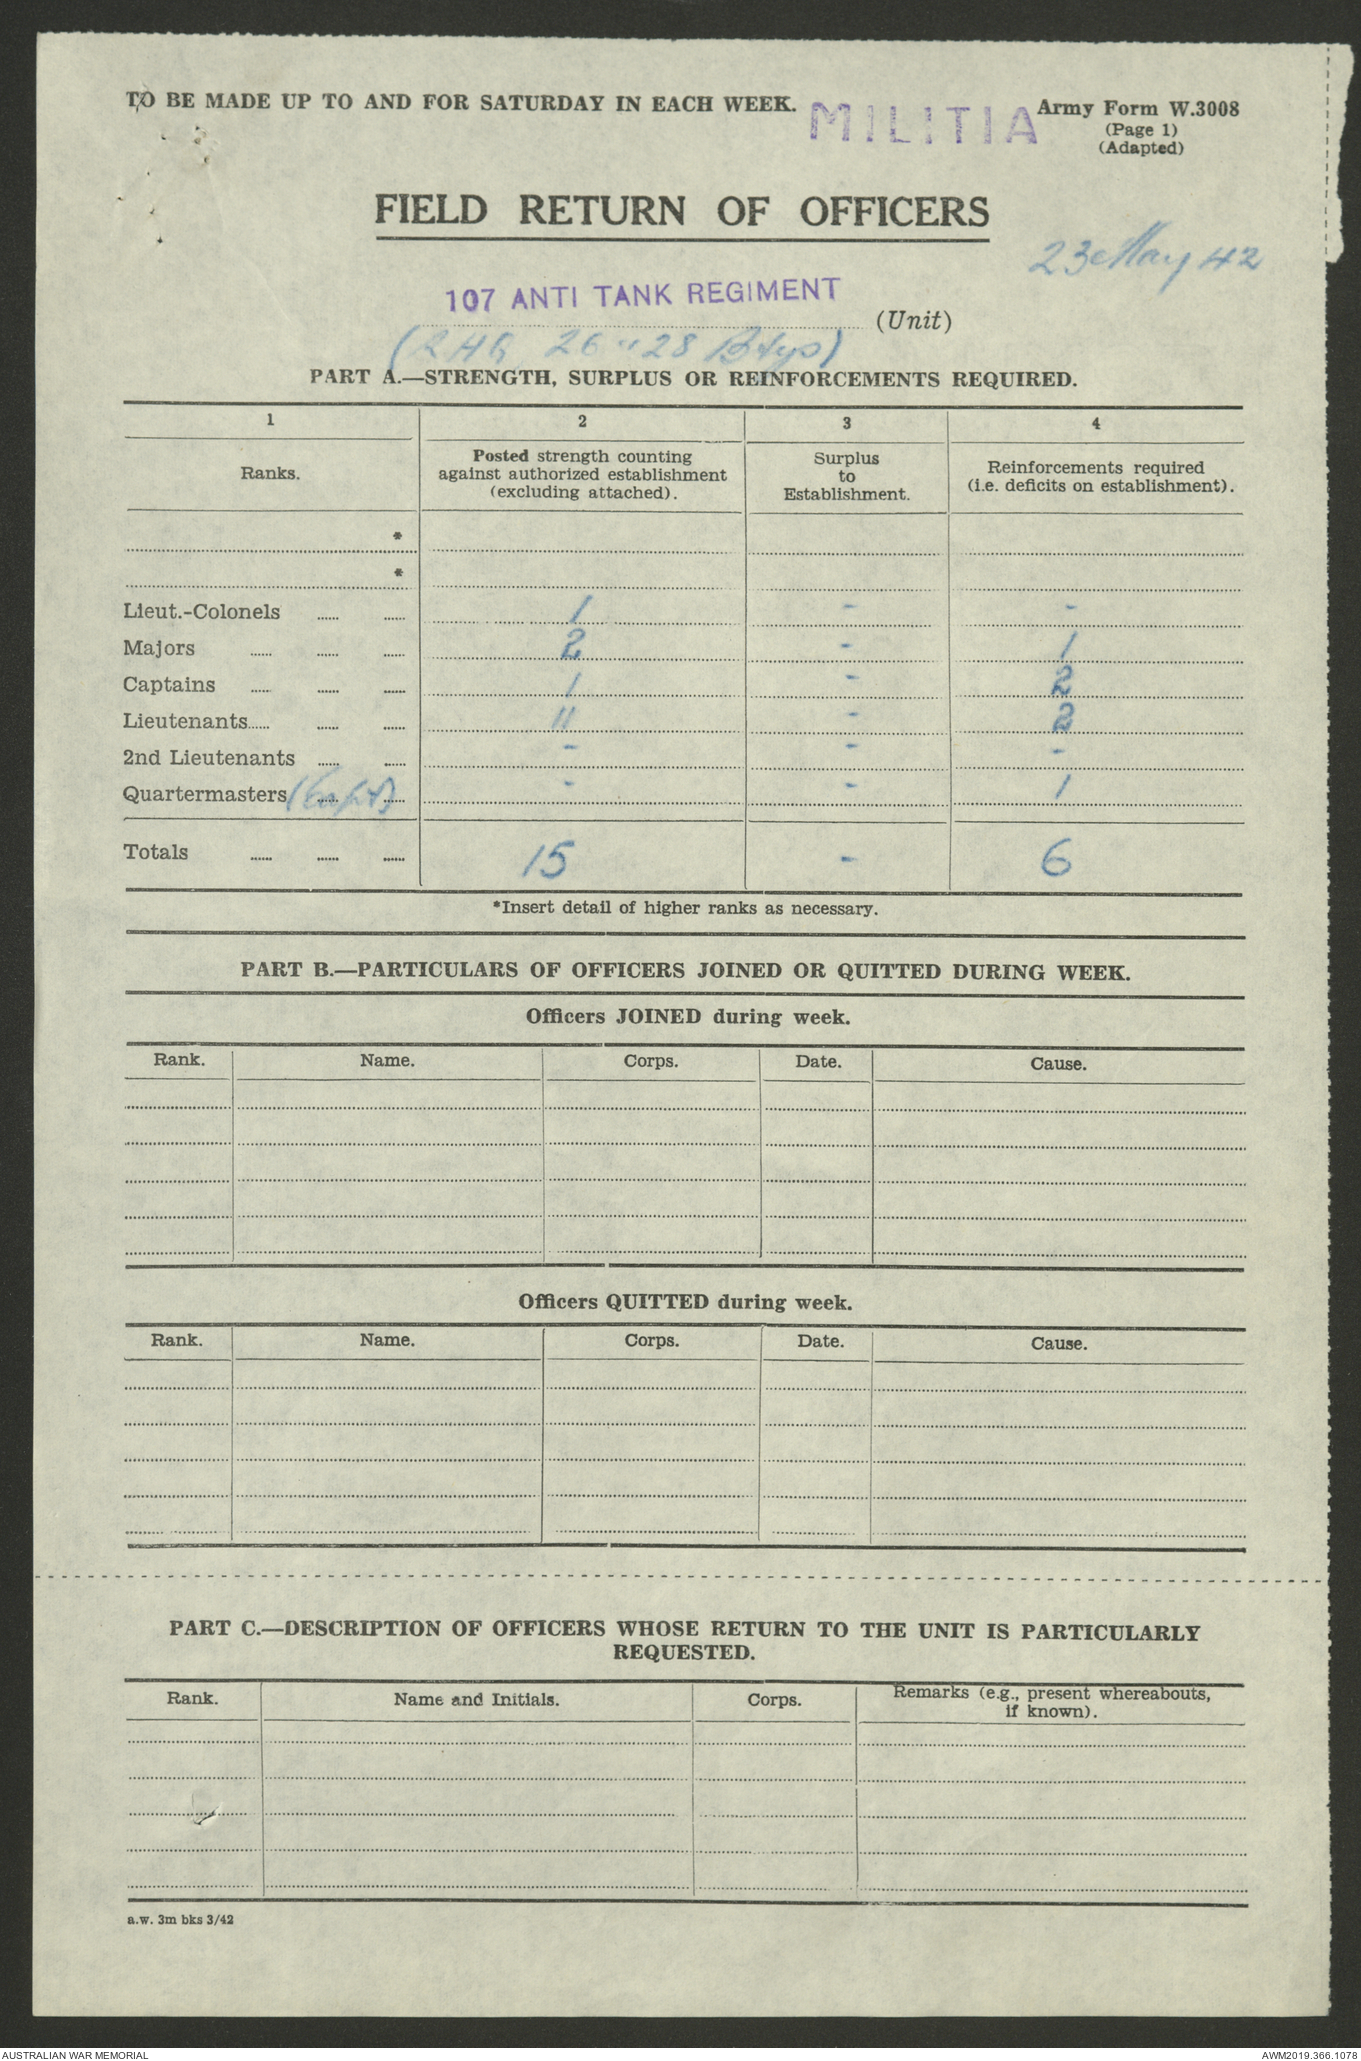 TO BE MADE UP TO AND FOR SATURDAY IN EACH WEEK.
MILITIA
Army Form W.3008
(Page 1)
(Adapted)
FIELD RETURN OF OFFICERS
23 May 42
107 ANTI TANK REGIMENT
(Unit)
(RHQ 26 " 28 Btys)
PART A.—STRENGTH, SURPLUS OR REINFORCEMENTS REQUIRED.
1 2 3 4
Ranks. Posted strength counting against authorized establishment (excluding attached). Surplus to Establishment. Reinforcements required (i.e. deficits on establishment).
*
*
Lieut.-Colonels 1 - -
Majors 2 - 1
Captains 1 - 2
Lieutenants 11 - 2
2nd Lieutenants - - -
Quartermasters (Capt) - - 1
Totals 15 - 6
*Insert detail of higher ranks as necessary.
PART B.—PARTICULARS OF OFFICERS JOINED OR QUITTED DURING WEEK.
Officers JOINED during week.
Rank. Name. Corps. Date. Cause.
Officers QUITTED during week.
Rank. Name. Corps. Date. Cause.
PART C.—DESCRIPTION OF OFFICERS WHOSE RETURN TO THE UNIT IS PARTICULARLY
REQUESTED.
Rank. Name and Initials. Corps. Remarks (e.g., present whereabouts, if known).
a.w. 3m bks 3/42
AUSTRALIAN WAR MEMORIAL
AWM2019.366.1078